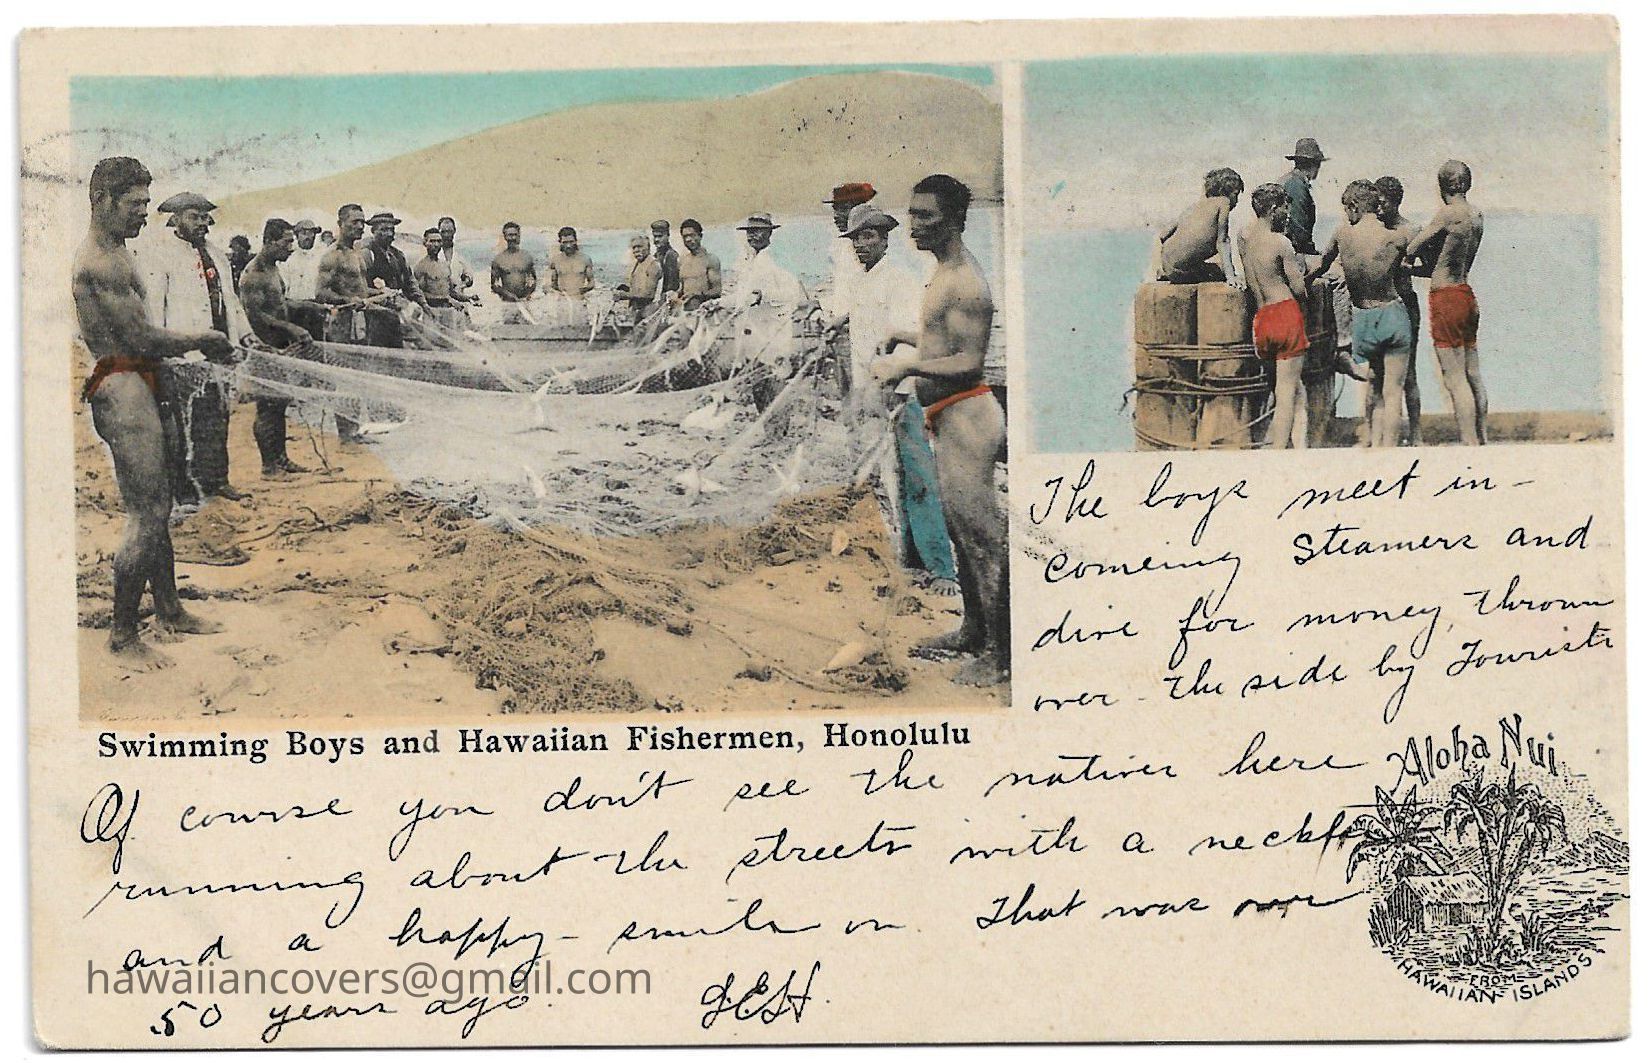 The boys meet in-
comeing Steamers and
dive for money, thrown
over the side by Tourists
Swimming Boys and Hawaiian Fishermen, Honolulu
Aloha Nui
Of course you don't see the natives here
running about the streets with a neckti
and a happy - smile on. That was over
50 years ago.
JEH.
FROM
HAWAIIAN ISLANDS
hawaiiancovers@gmail.com